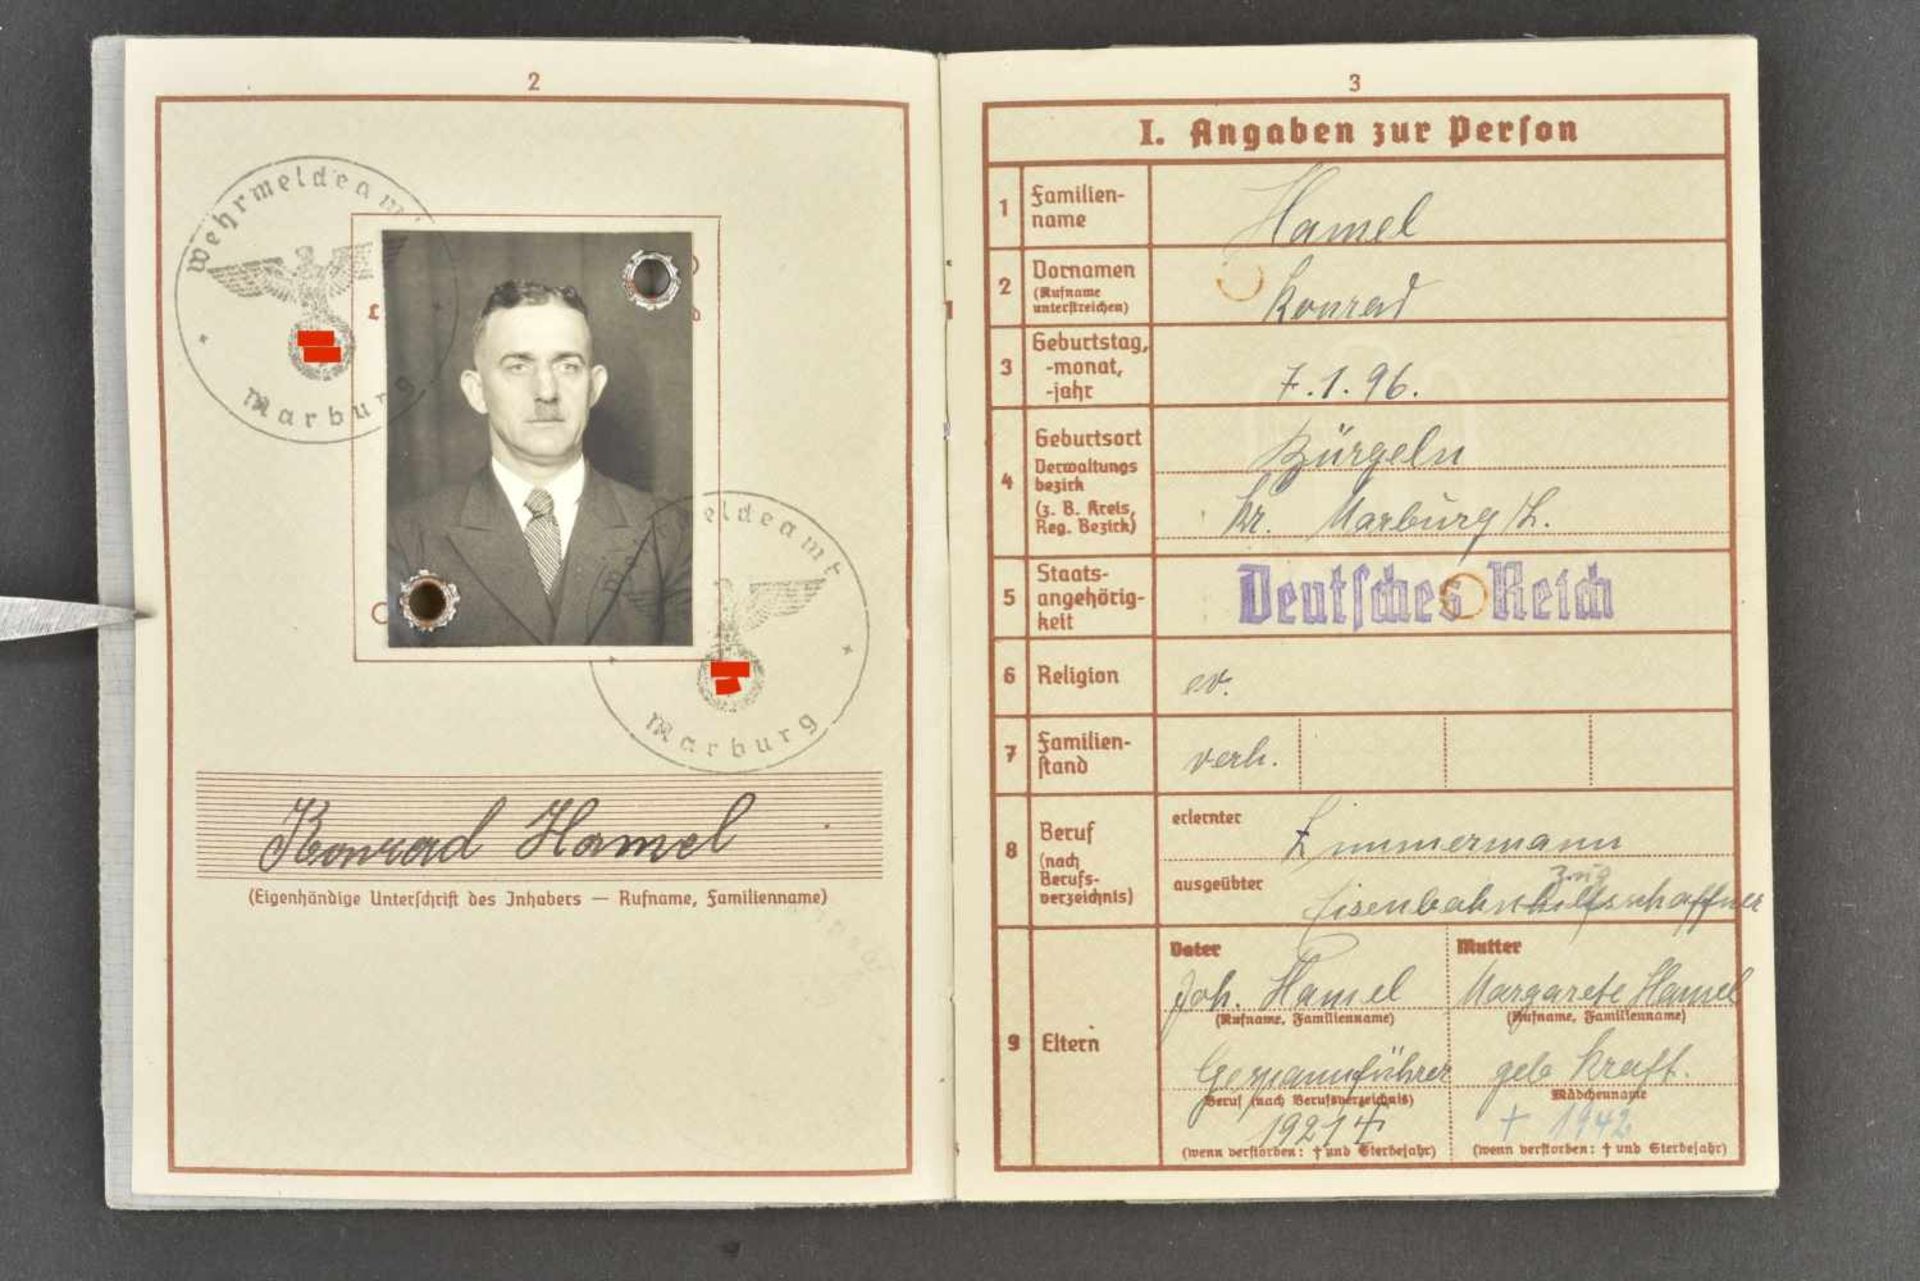 2
Wehrmeldeamt
Marburg
Wehrmeldeamt
Marburg
Konrad Hamel
(Eigenhändige Unterschrift des Inhabers — Rufname, Familienname)
3
I. Angaben zur Person
1 Familien-
name
Hamel
2 Vornamen
(Rufname
unterstreichen)
Konrad
3 Geburtstag,
-monat,
-jahr
7.1.96.
4 Geburtsort
Verwaltungs
bezirk
(z. B. Kreis,
Reg. Bezirk)
Bürgeln
Kr. Marburg/L.
5 Staats-
angehörig-
keit
Deutsches Reich
6 Religion
ev.
7 Familien-
stand
verh.
8 Beruf
(nach
Berufs-
verzeichnis)
erlernter
Zimmermann
zug
ausgeübter
Eisenbahnhilfsschaffner
9 Eltern
Vater
Joh. Hamel
(Rufname, Familienname)
Beruf (nach Berufsverzeichnis)
1921 †
(wenn verstorben: † und Sterbejahr)
Mutter
Margarete Hamel
(Rufname, Familienname)
geb Kraft.
Mädchenname
† 1942
(wenn verstorben: † und Sterbejahr)